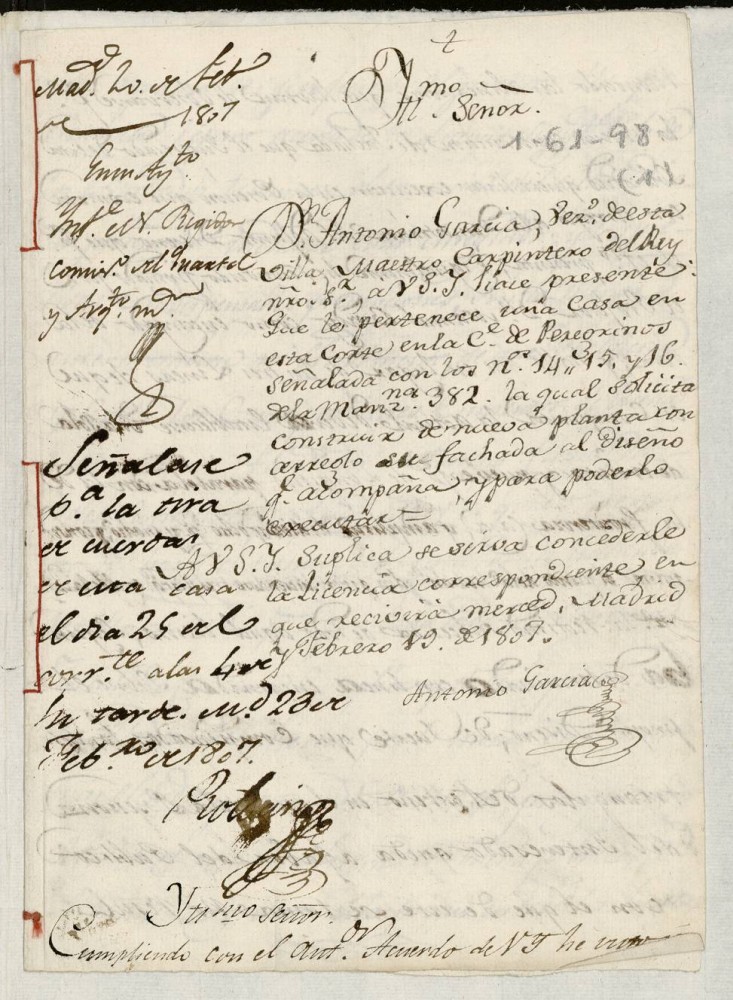 Mad.d 20. de Feb.o
de 1807
En su Ay.to
Inf.e el S.r Regidor
Comis.o del Quartel
y Arq.to m.r
Señalase
p.a la tira
de cuerdas
de esta casa
el dia 25 del
corr.te a las 4 de
la tarde. Md 23 de
Feb.ro de 1807.
Yll.mo Señor.
1-61-98
(1)
D.n Antonio Garcia, Vez.o de esta
Villa, Maestro Carpintero del Rey
nro. S.r, a V S. Y. hace presente:
Que le pertenece una Casa en
esta Corte en la C.e de Peregrinos
señalada con los n.os 14,, 15, y 16.
de la Manz.na 382. la qual solicita
construir de nueva planta con
arreglo su fachada al Diseño
q.e acompaña, y para poderlo
executar=
A V S. Y. Suplica se sirva concederle
la Licencia correspondiente en
que recivirá merced, Madrid
y Febrero 19. de 1807.
Antonio Garcia
Yltmo Señor.
Cumpliendo con el ant.or Acuerdo de V Y he visto